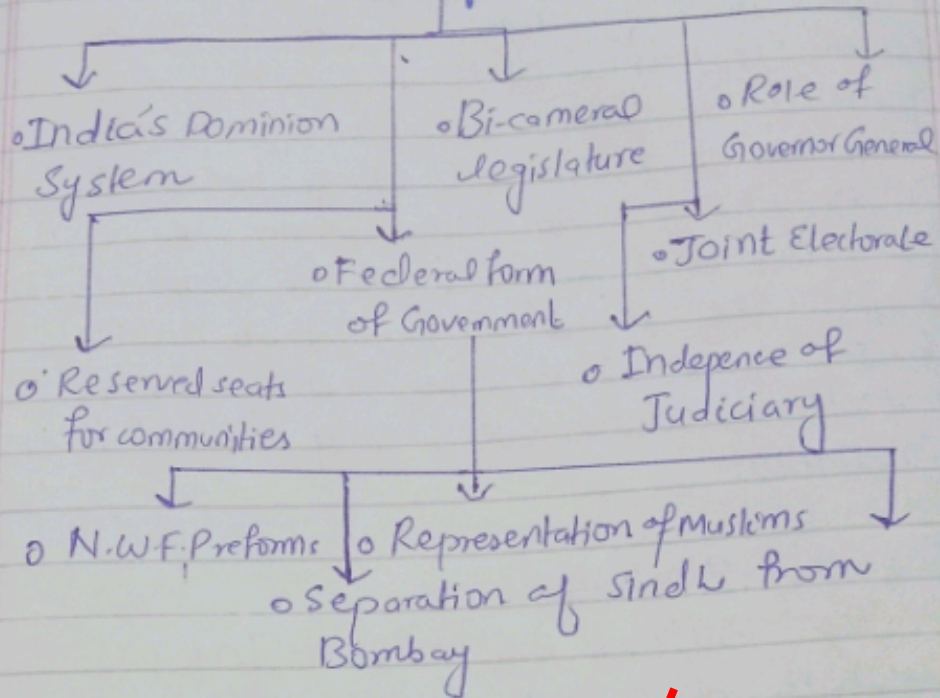 o India's Dominion
System
o Bi-cameral
legislature
o Role of
Governor General
o Federal form
of Government
o Joint Electorale
o Reserved seats
for communities
o Indepence of
Judiciary
o N.W.F.P reforms
o Representation of Muslims
o Separation of Sindh from
Bombay